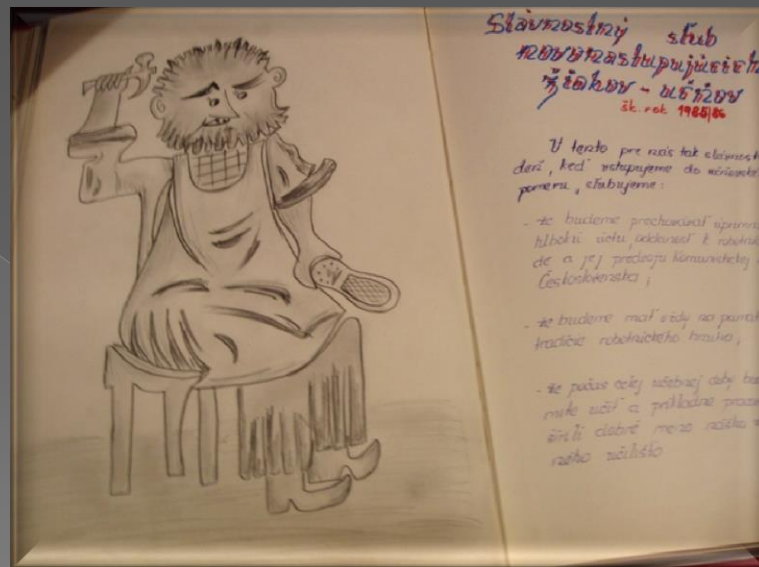 Slávnostný sľub
novonastupujúcich
žiakov - učňov
šk. rok 1985/86
V tento pre nás tak slávnostn
deň, keď vstupujeme do
pomeru, sľubujeme:
- že budeme prechovávať úprimn
hlbokú úctu, oddanosť k
de a jej predvoju Komunistickej
Československa;
- že budeme mať vždy na pamät
tradície robotníckeho hnutia;
- že počas celej učebnej doby bu
me učiť a príkladne praco
šíriť dobré meno nášho
ného učilišťa